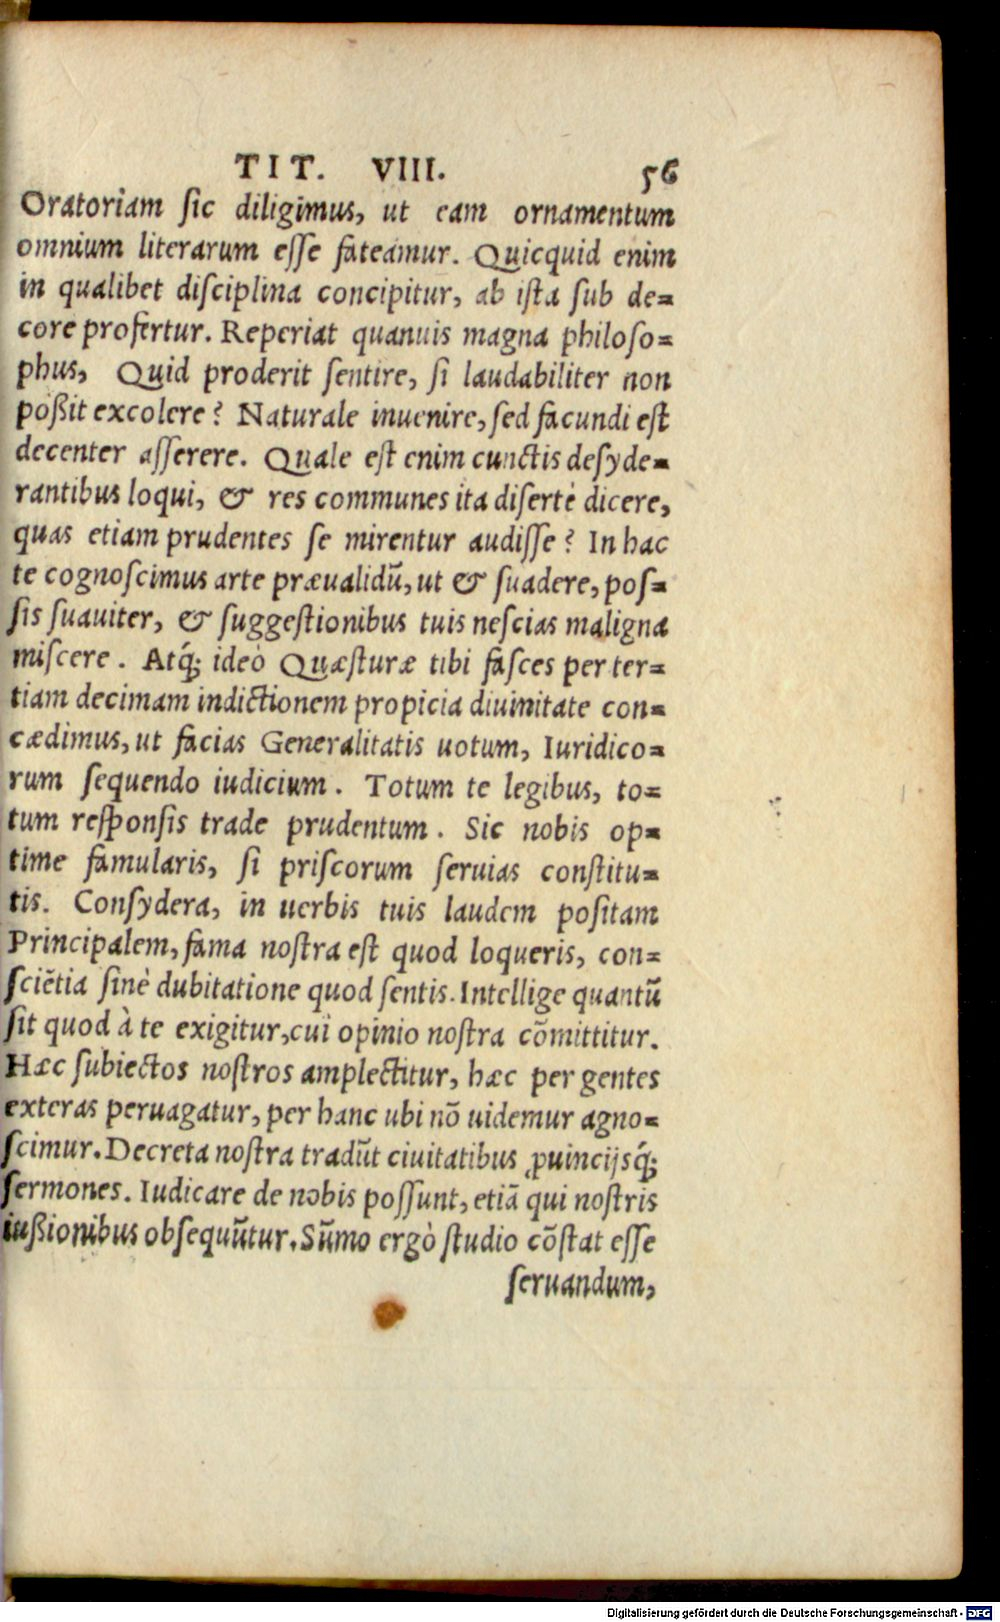 TIT. VIII. 56
Oratoriam sic diligimus, ut eam ornamentum
omnium literarum esse fateamur. Quicquid enim
in qualibet disciplina concipitur, ab ista sub de=
core profertur. Reperiat quanuis magna philoso=
phus, Quid proderit sentire, si laudabiliter non
poßit excolere? Naturale inuenire, sed facundi est
decenter asserere. Quale est enim cunctis desyde=
rantibus loqui, & res communes ita disertè dicere,
quas etiam prudentes se mirentur audisse? In hac
te cognoscimus arte præualidũ, ut & suadere, pos=
sis suauiter, & suggestionibus tuis nescias maligna
miscere. Atq́; ideò Quæsturæ tibi fasces per ter=
tiam decimam indictionem propicia diuinitate con=
cædimus, ut facias Generalitatis uotum, Iuridico=
rum sequendo iudicium. Totum te legibus, to=
tum responsis trade prudentum. Sic nobis op=
time famularis, si priscorum seruias constitu=
tis. Consydera, in uerbis tuis laudem positam
Principalem, fama nostra est quod loqueris, con=
sciẽtia sinè dubitatione quod sentis. Intellige quantũ
sit quod à te exigitur, cui opinio nostra cõmittitur.
Hæc subiectos nostros amplectitur, hæc per gentes
exteras peruagatur, per hanc ubi nõ uidemur agno=
scimur. Decreta nostra tradũt ciuitatibus ꝓuincijsq́;
sermones. Iudicare de nobis possunt, etiã qui nostris
iußionibus obsequũtur. Sũmo ergò studio cõstat esse
seruandum,
Digitalisierung gefördert durch die Deutsche Forschungsgemeinschaft - DFG